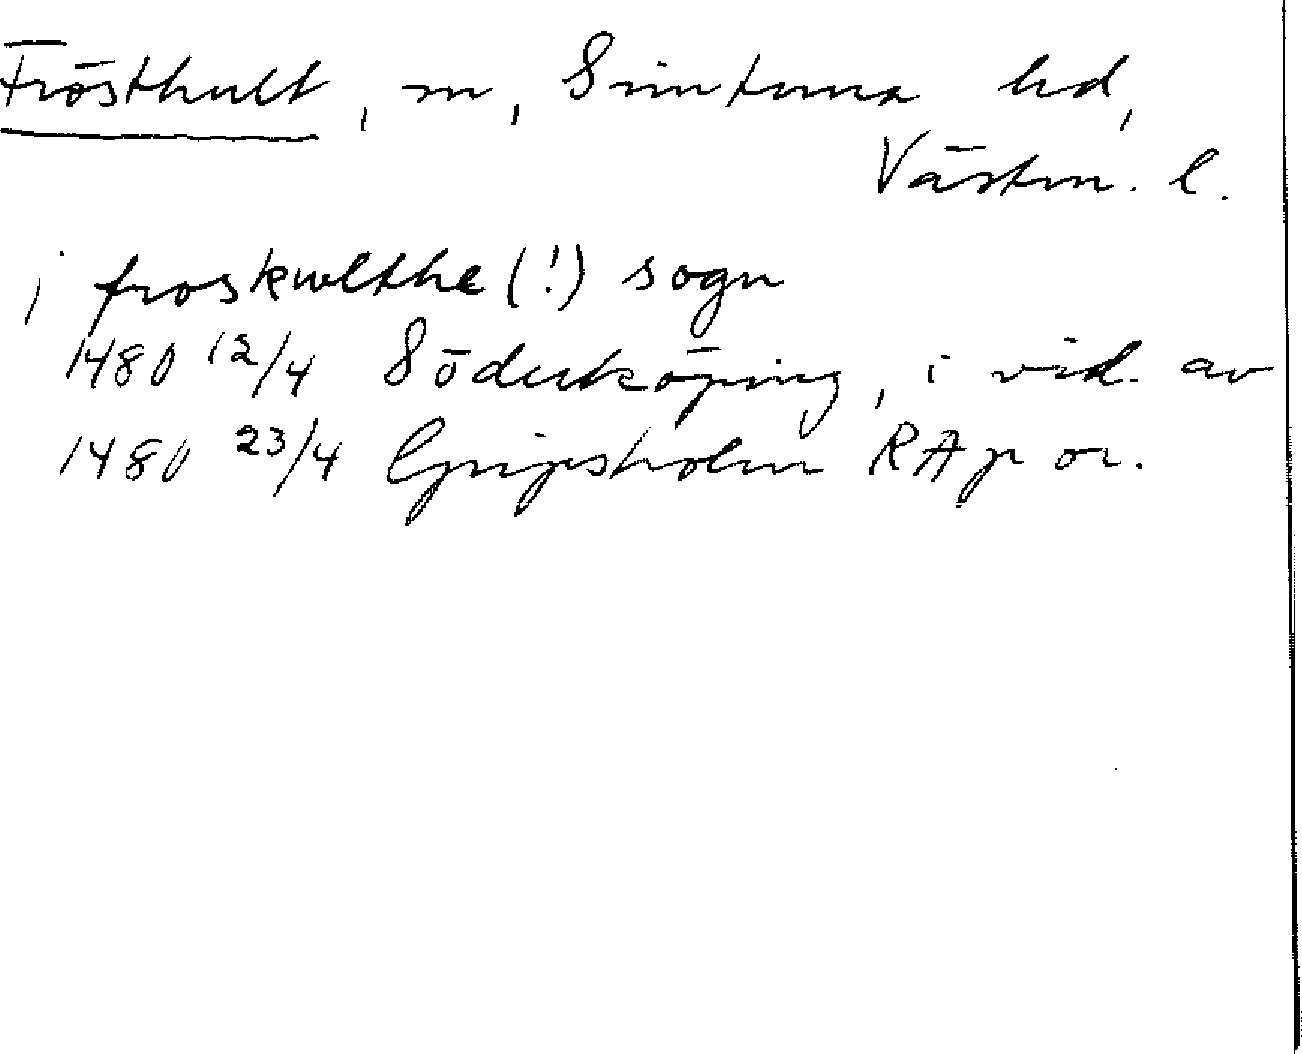 Frösthult, sn, Simtuna hd,
Västm. l.
j froskwlthe (!) sogn
1480 12/4 Söderköping, i vid. av
1480 23/4 Gripsholm RAp or.